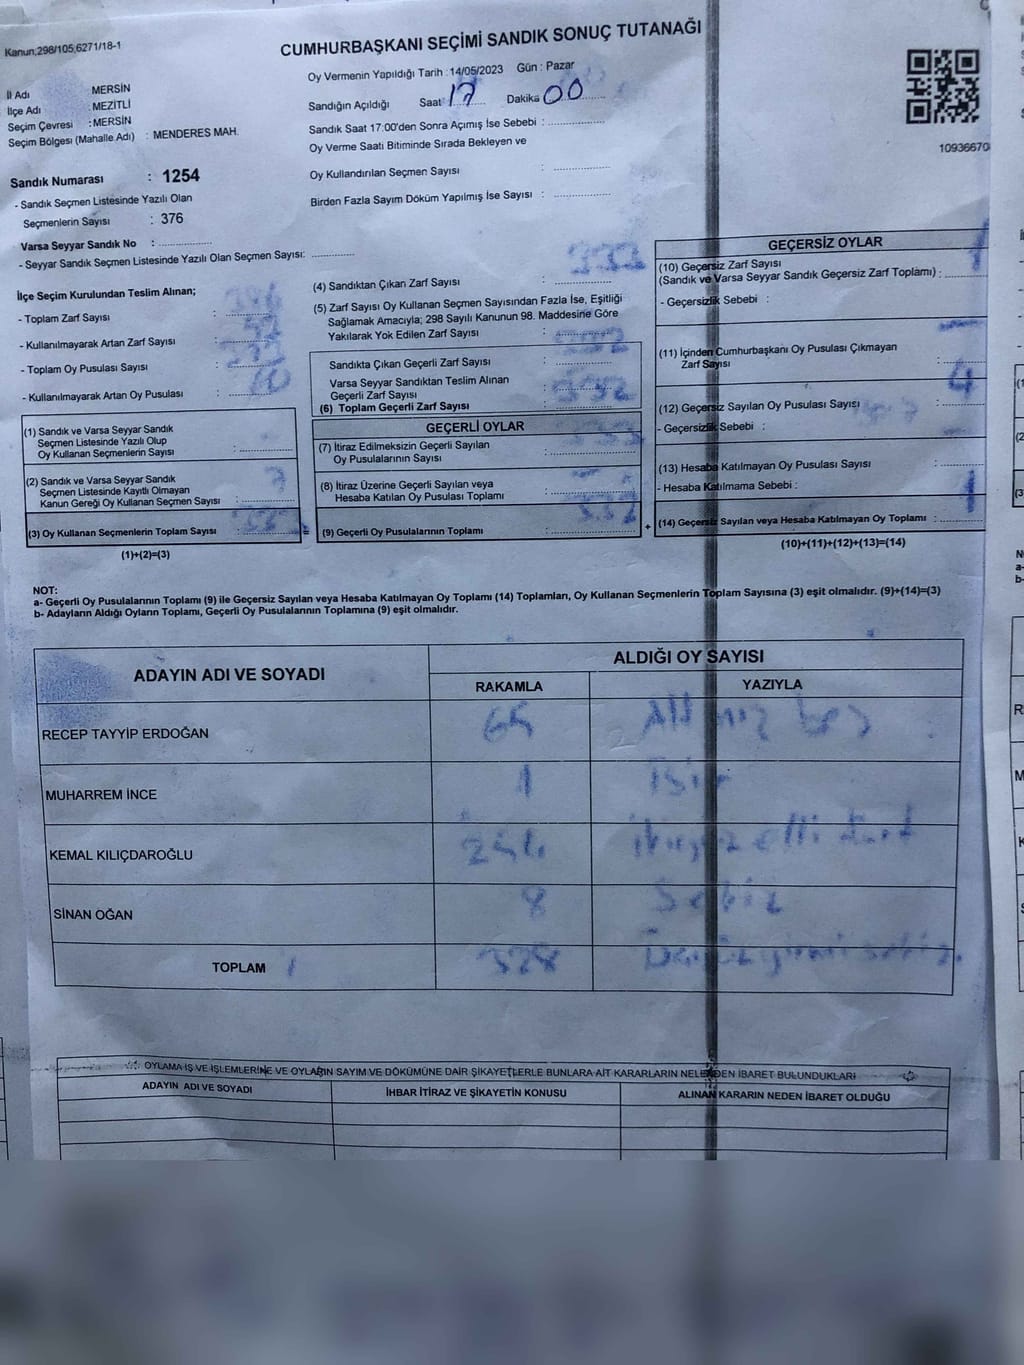 Kanun;298/105,6271/18-1
CUMHURBAŞKANI SEÇİMİ SANDIK SONUÇ TUTANAĞI
Oy Vermenin Yapıldığı Tarih :14/05/2023 Gün : Pazar
İl Adı MERSİN
İlçe Adı : MEZİTLİ
Seçim Çevresi : MERSİN
Seçim Bölgesi (Mahalle Adı) : MENDERES MAH.
Sandığın Açıldığı Saat 17 Dakika 00
Sandık Saat 17:00'den Sonra Açımış İse Sebebi :
Oy Verme Saati Bitiminde Sırada Bekleyen ve
Oy Kullandırılan Seçmen Sayısı :
Birden Fazla Sayım Döküm Yapılmış İse Sayısı :
10936670
Sandık Numarası : 1254
- Sandık Seçmen Listesinde Yazılı Olan
Seçmenlerin Sayısı : 376
Varsa Seyyar Sandık No :
- Seyyar Sandık Seçmen Listesinde Yazılı Olan Seçmen Sayısı:
İlçe Seçim Kurulundan Teslim Alınan;
- Toplam Zarf Sayısı :
- Kullanılmayarak Artan Zarf Sayısı :
- Toplam Oy Pusulası Sayısı :
- Kullanılmayarak Artan Oy Pusulası :
(1) Sandık ve Varsa Seyyar Sandık
Seçmen Listesinde Yazılı Olup
Oy Kullanan Seçmenlerin Sayısı :
(2) Sandık ve Varsa Seyyar Sandık
Seçmen Listesinde Kayıtlı Olmayan
Kanun Gereği Oy Kullanan Seçmen Sayısı :
(3) Oy Kullanan Seçmenlerin Toplam Sayısı :
(1)+(2)=(3)
(4) Sandıktan Çıkan Zarf Sayısı : 332
(5) Zarf Sayısı Oy Kullanan Seçmen Sayısından Fazla İse, Eşitliği
Sağlamak Amacıyla; 298 Sayılı Kanunun 98. Maddesine Göre
Yakılarak Yok Edilen Zarf Sayısı :
Sandıkta Çıkan Geçerli Zarf Sayısı : 332
Varsa Seyyar Sandıktan Teslim Alınan
Geçerli Zarf Sayısı :
(6) Toplam Geçerli Zarf Sayısı : 332
GEÇERLİ OYLAR
(7) İtiraz Edilmeksizin Geçerli Sayılan
Oy Pusulalarının Sayısı :
(8) İtiraz Üzerine Geçerli Sayılan veya
Hesaba Katılan Oy Pusulası Toplamı :
(9) Geçerli Oy Pusulalarının Toplamı : 332
GEÇERSİZ OYLAR
(10) Geçersiz Zarf Sayısı
(Sandık ve Varsa Seyyar Sandık Geçersiz Zarf Toplamı) : 1
- Geçersizlik Sebebi :
(11) İçinden Cumhurbaşkanı Oy Pusulası Çıkmayan
Zarf Sayısı :
(12) Geçersiz Sayılan Oy Pusulası Sayısı : 4
- Geçersizlik Sebebi :
(13) Hesaba Katılmayan Oy Pusulası Sayısı :
- Hesaba Katılmama Sebebi :
(14) Geçersiz Sayılan veya Hesaba Katılmayan Oy Toplamı : 1
(10)+(11)+(12)+(13)=(14)
NOT:
a- Geçerli Oy Pusulalarının Toplamı (9) ile Geçersiz Sayılan veya Hesaba Katılmayan Oy Toplamı (14) Toplamları, Oy Kullanan Seçmenlerin Toplam Sayısına (3) eşit olmalıdır. (9)+(14)=(3)
b- Adayların Aldığı Oyların Toplamı, Geçerli Oy Pusulalarının Toplamına (9) eşit olmalıdır.
ADAYIN ADI VE SOYADI ALDIĞI OY SAYISI
RAKAMLA YAZIYLA
RECEP TAYYİP ERDOĞAN 65 Altmış beş
MUHARREM İNCE 1 Bir
KEMAL KILIÇDAROĞLU 254 ikiyüz elli dört
SİNAN OĞAN 8 Sekiz
TOPLAM 328 Üçyüzyirmi sekiz
OYLAMA İŞ VE İŞLEMLERİNE VE OYLARIN SAYIM VE DÖKÜMÜNE DAİR ŞİKAYETLERLE BUNLARA AİT KARARLARIN NELERDEN İBARET BULUNDUKLARI
ADAYIN ADI VE SOYADI İHBAR İTİRAZ VE ŞİKAYETİN KONUSU ALINAN KARARIN NEDEN İBARET OLDUĞU